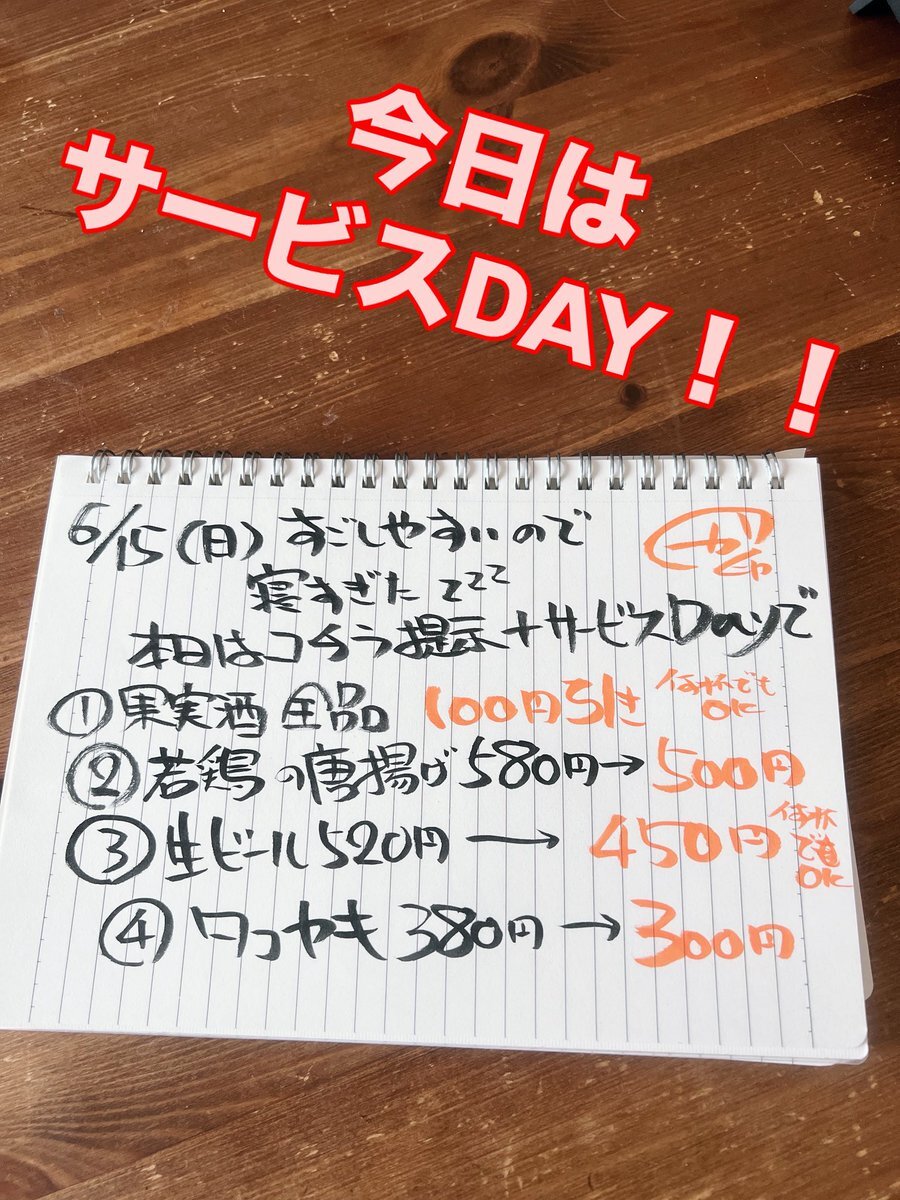 今日は
サービスDAY！！
6/15(日) すごしやすいので
寝すぎた zzz
本日はコチラ提示+サービスDayで
①果実酒 全品 100円引き 何杯でもOK
②若鶏の唐揚げ 580円→500円
③生ビール520円→450円 何杯でもOK
④タコヤキ 380円→300円